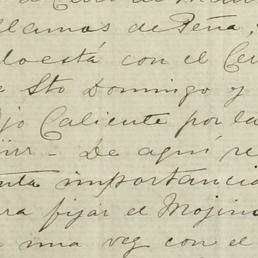 llamos de Peña;
do está con el Cer
Sto Domingo y
jo Caliente por la
De aquí re
nta importancia
ra fijar el Mojino
una vez con el